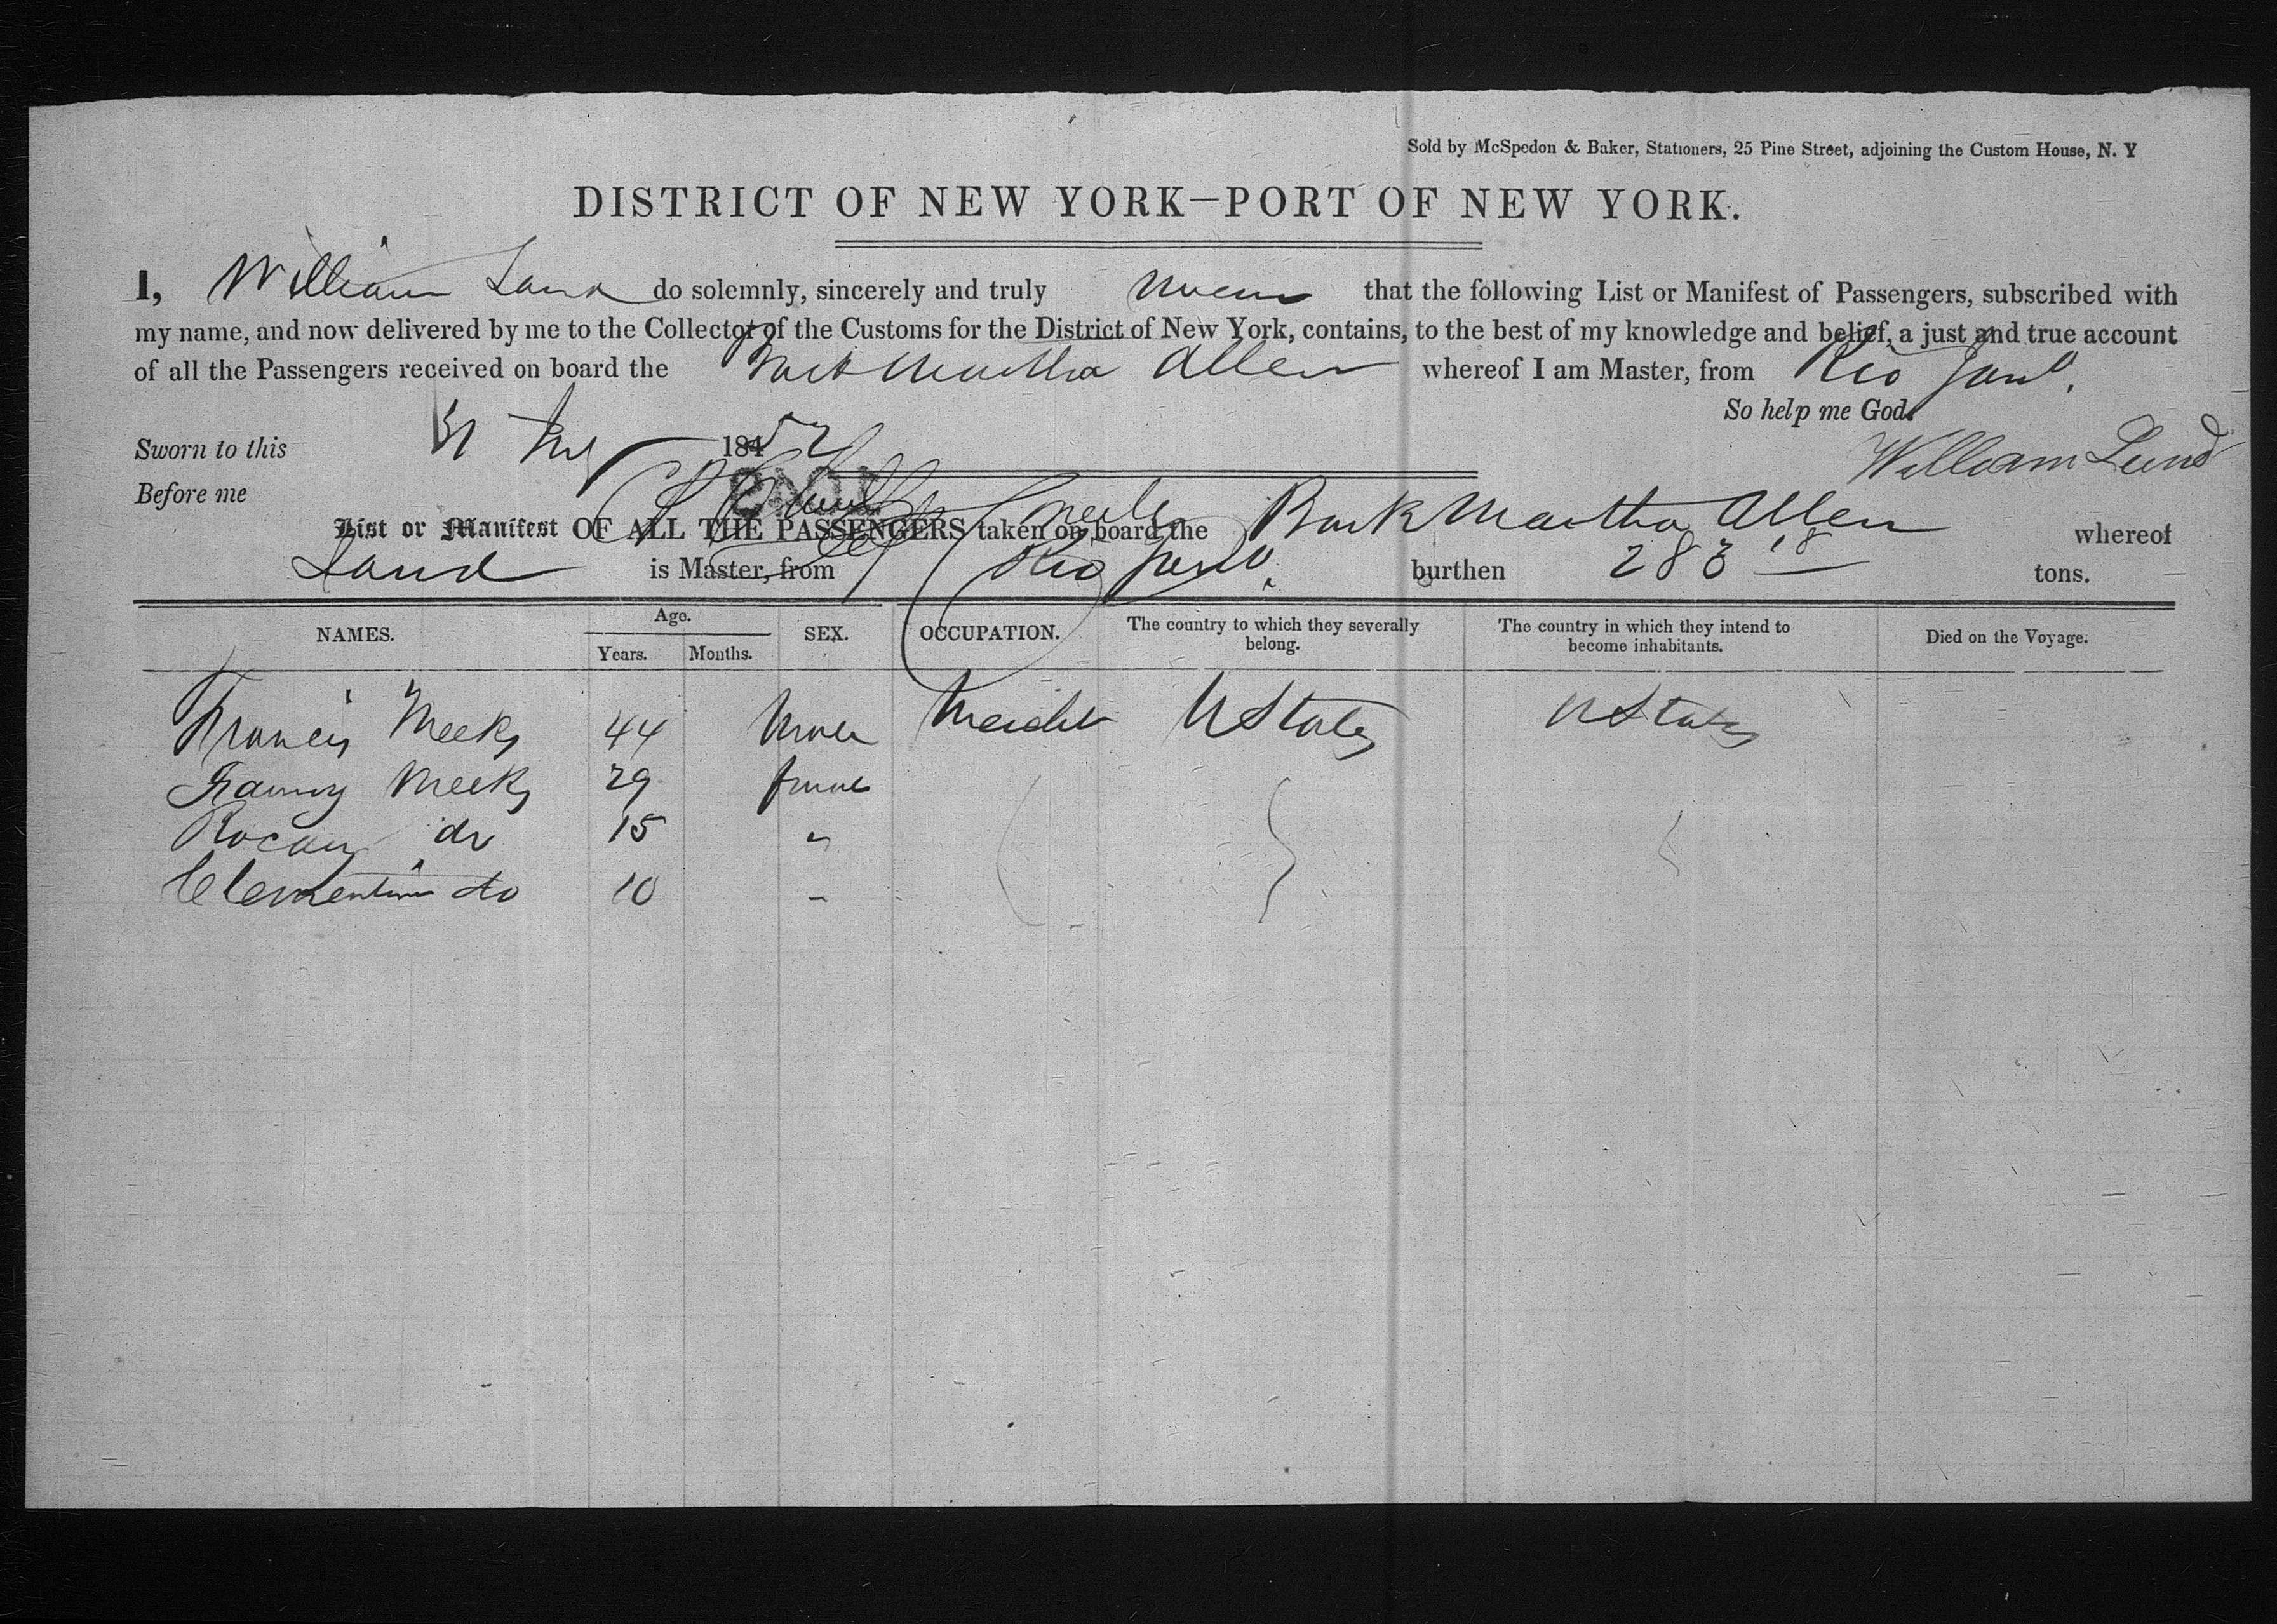 Sold by McSpedon & Baker, Stationers, 25 Pine Street, adjoining the Custom House, N. Y
DISTRICT OF NEW YORK—PORT OF NEW YORK.
I, William Lund do solemnly, sincerely and truly swear that the following List or Manifest of Passengers, subscribed with
my name, and now delivered by me to the Collector of the Customs for the District of New York, contains, to the best of my knowledge and belief, a just and true account
of all the Passengers received on board the Bark Martha Allen whereof I am Master, from Rio Jano.
So help me God.
Sworn to this 31 1852
William Lund
Before me
List or Manifest OF ALL THE PASSENGERS taken on board the Bark Martha Allen whereof
Lund is Master, from Rio Jano. burthen 283 18 tons.
NAMES. Age. Years. Months. SEX. OCCUPATION. The country to which they severally belong. The country in which they intend to become inhabitants. Died on the Voyage.
Francis Meeks 44 Male U States U States
Fanny Meeks 29 female
do 15 "
Clementine do 10 "